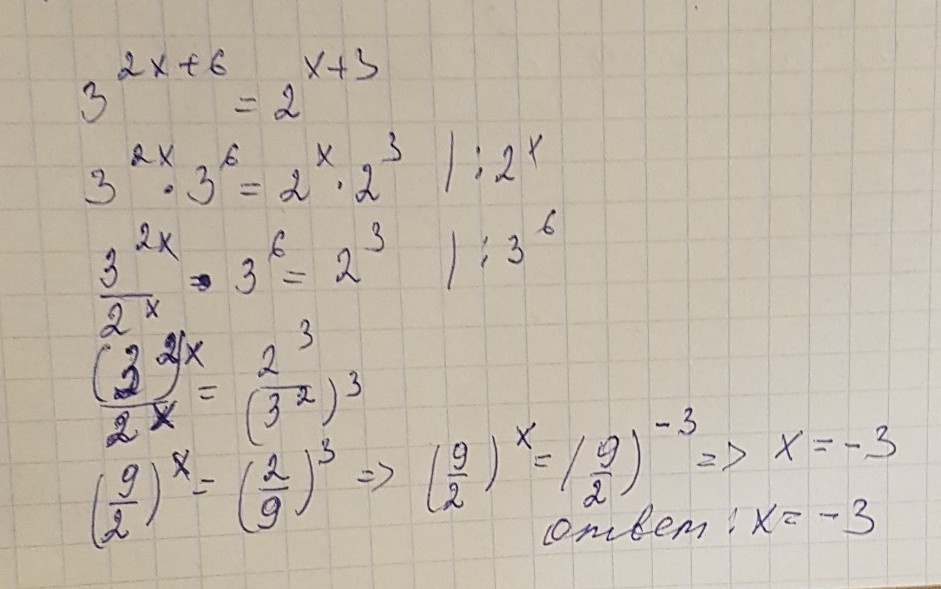 3^(2x+6) = 2^(x+3)
3^(2x) · 3^6 = 2^x · 2^3 | : 2^x
3^(2x)/2^x · 3^6 = 2^3 | : 3^6
(3^2)^x/2^x = 2^3/(3^2)^3
(9/2)^x = (2/9)^3 => (9/2)^x = (9/2)^(-3) => x = -3
ответ: x = -3